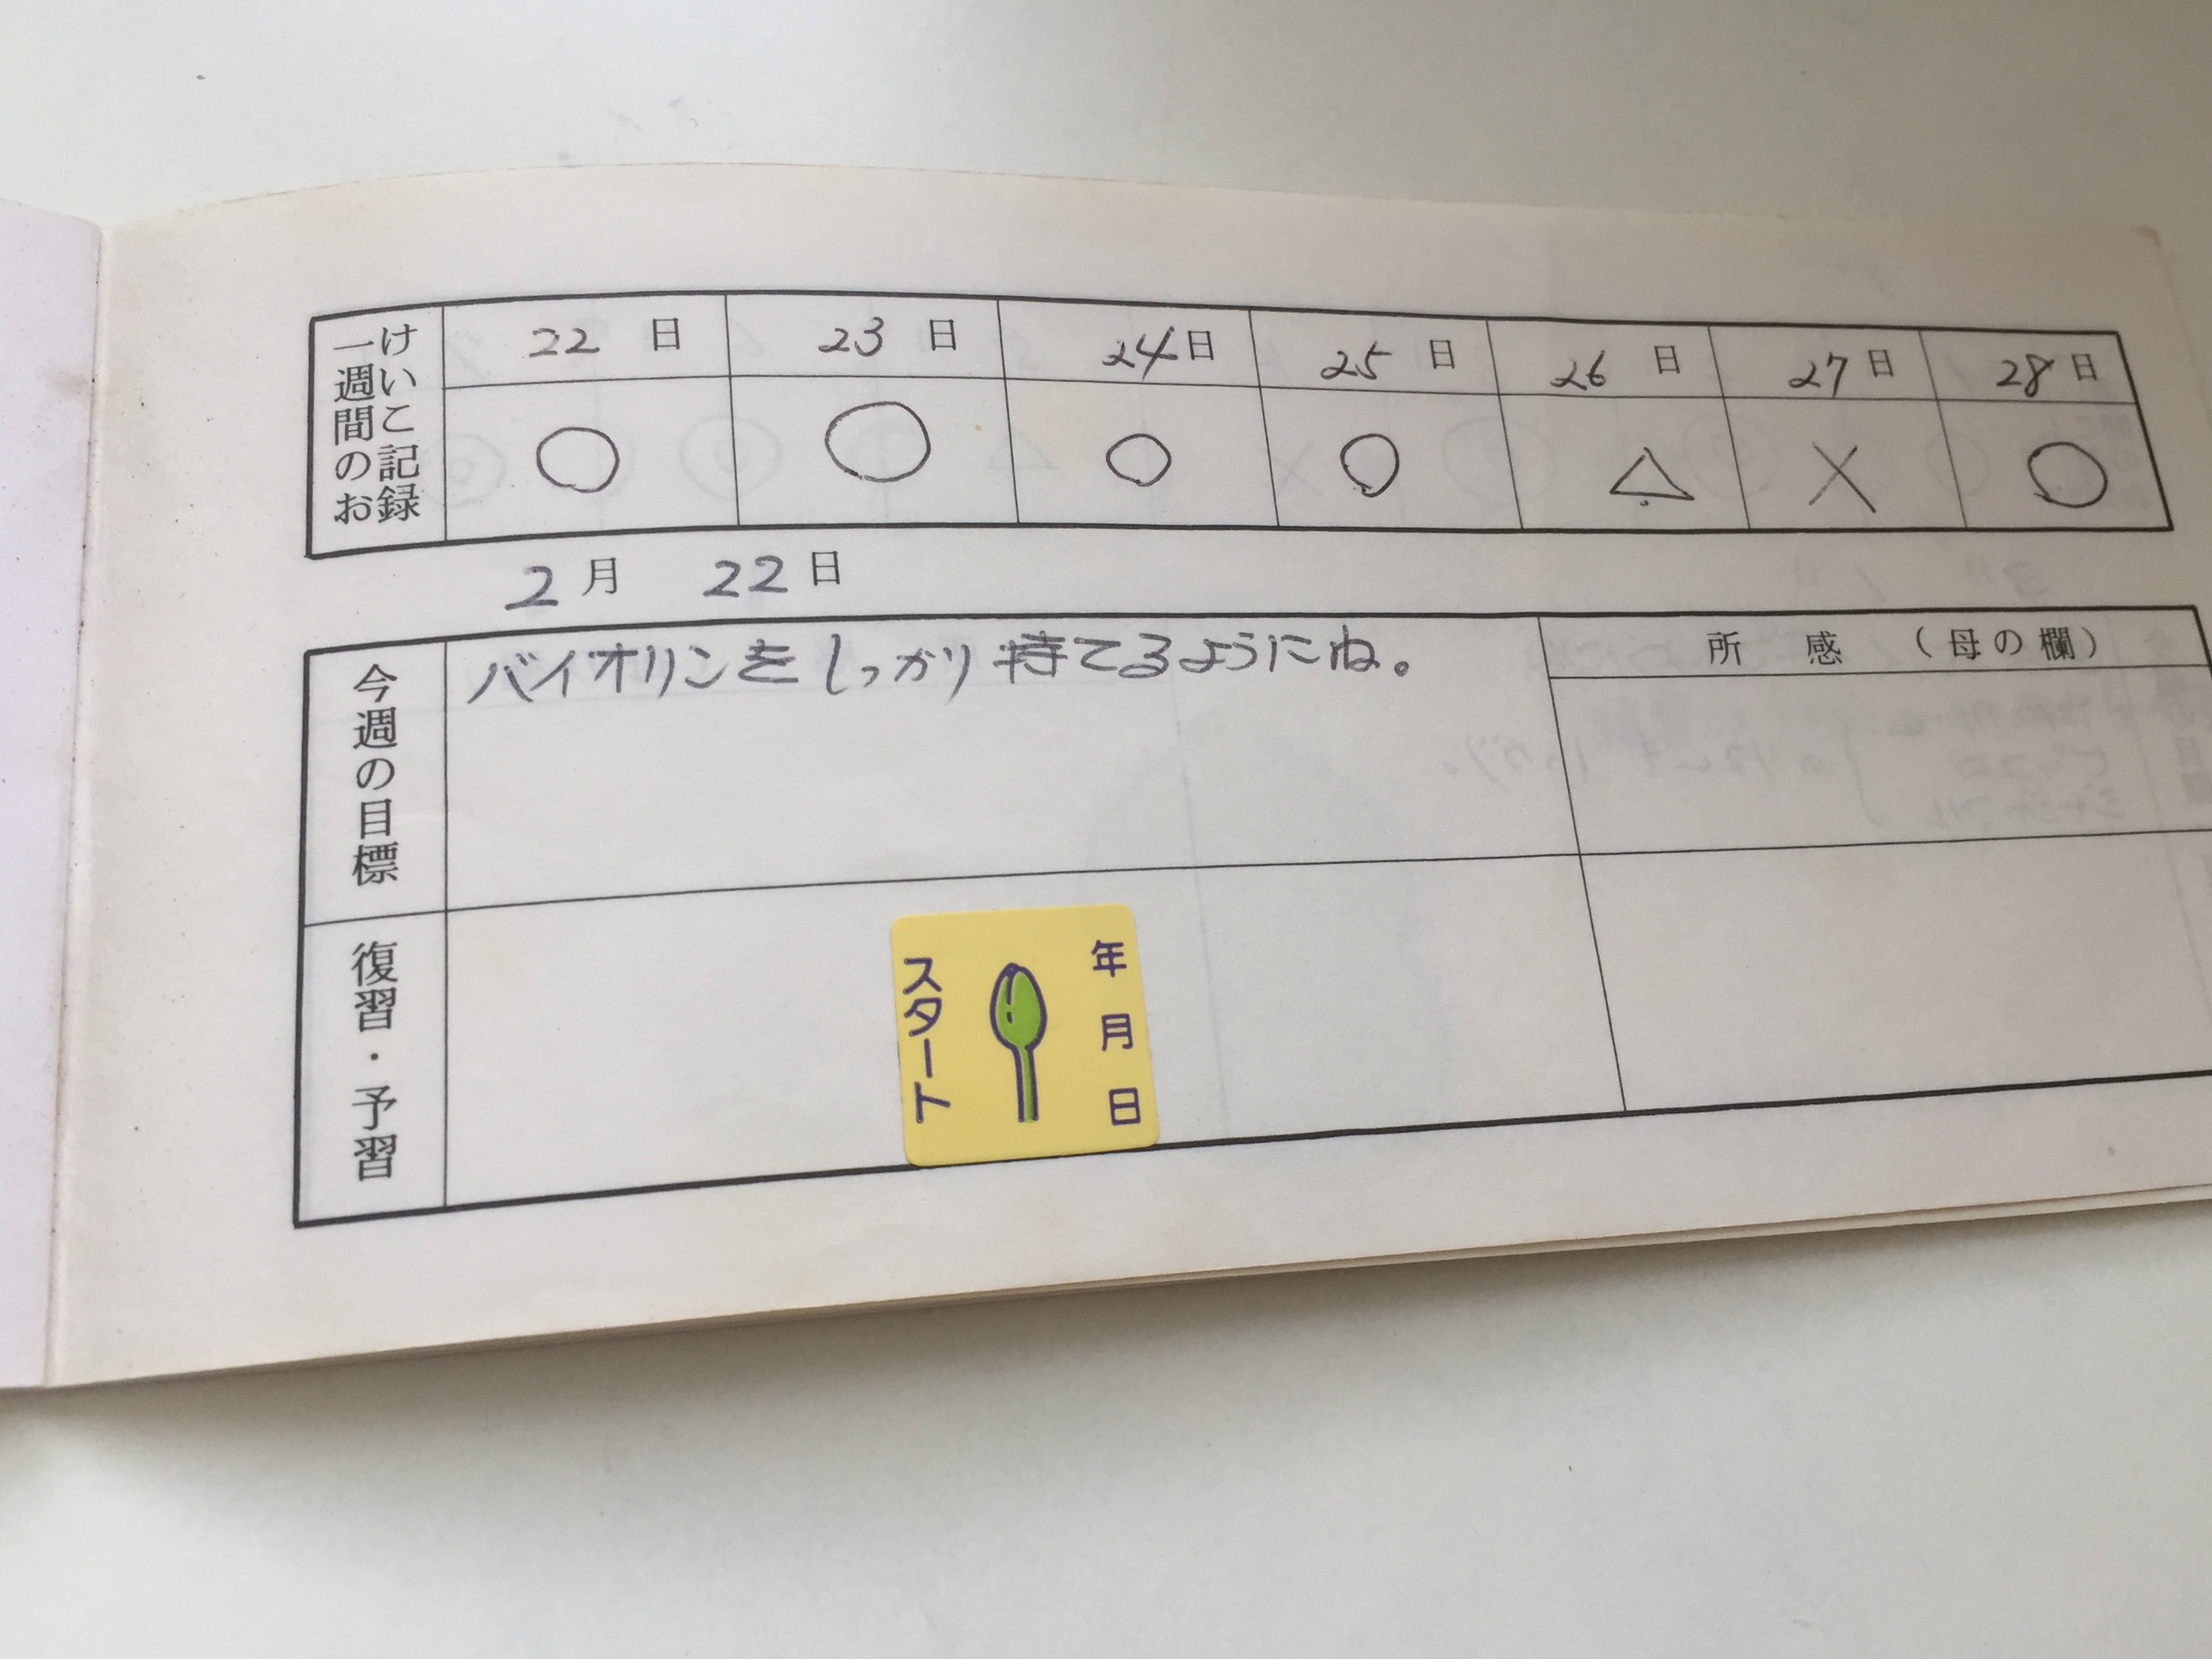 一週間のお
けいこ記録
22日 23日 24日 25日 26日 27日 28日
○ ○ ○ ○ △ × ○
2月 22日
今週の目標
バイオリンをしっかり持てるようにね。
所感（母の欄）
復習・予習
スタート
年月日